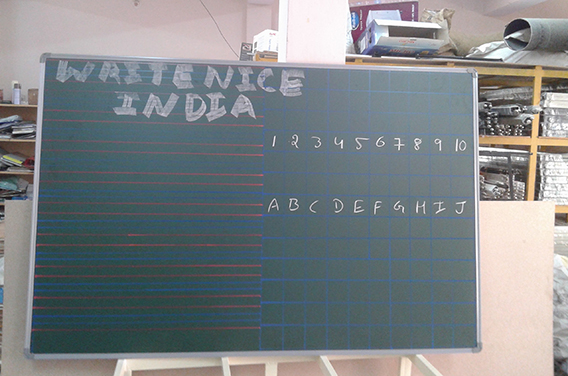 WRITE NICE
INDIA
1 2 3 4 5 6 7 8 9 10
A B C D E F G H I J